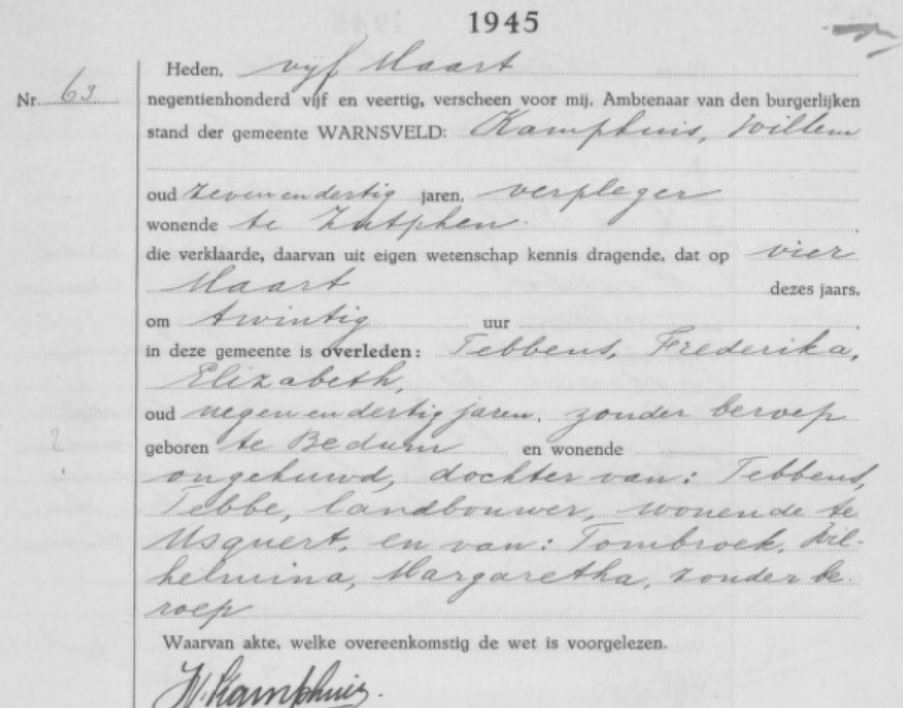 1945
Heden, vijf Maart
Nr. 63
negentienhonderd vijf en veertig, verscheen voor mij, Ambtenaar van den burgerlijken
stand der gemeente WARNSVELD: Kamphuis, Willem
oud zevenendertig jaren, verpleger
wonende te Zutphen
die verklaarde, daarvan uit eigen wetenschap kennis dragende, dat op vier
Maart dezes jaars,
om twintig uur
in deze gemeente is overleden: Tebbens, Frederika,
Elizabeth,
oud negenendertig jaren, zonder beroep
geboren te Bedum en wonende
ongehuwd, dochter van: Tebbens,
Tebbe, landbouwer, wonende te
Usquert, en van: Tombroek, Wil-
helmina, Margaretha, zonder be-
roep
Waarvan akte, welke overeenkomstig de wet is voorgelezen.
W. Kamphuis.